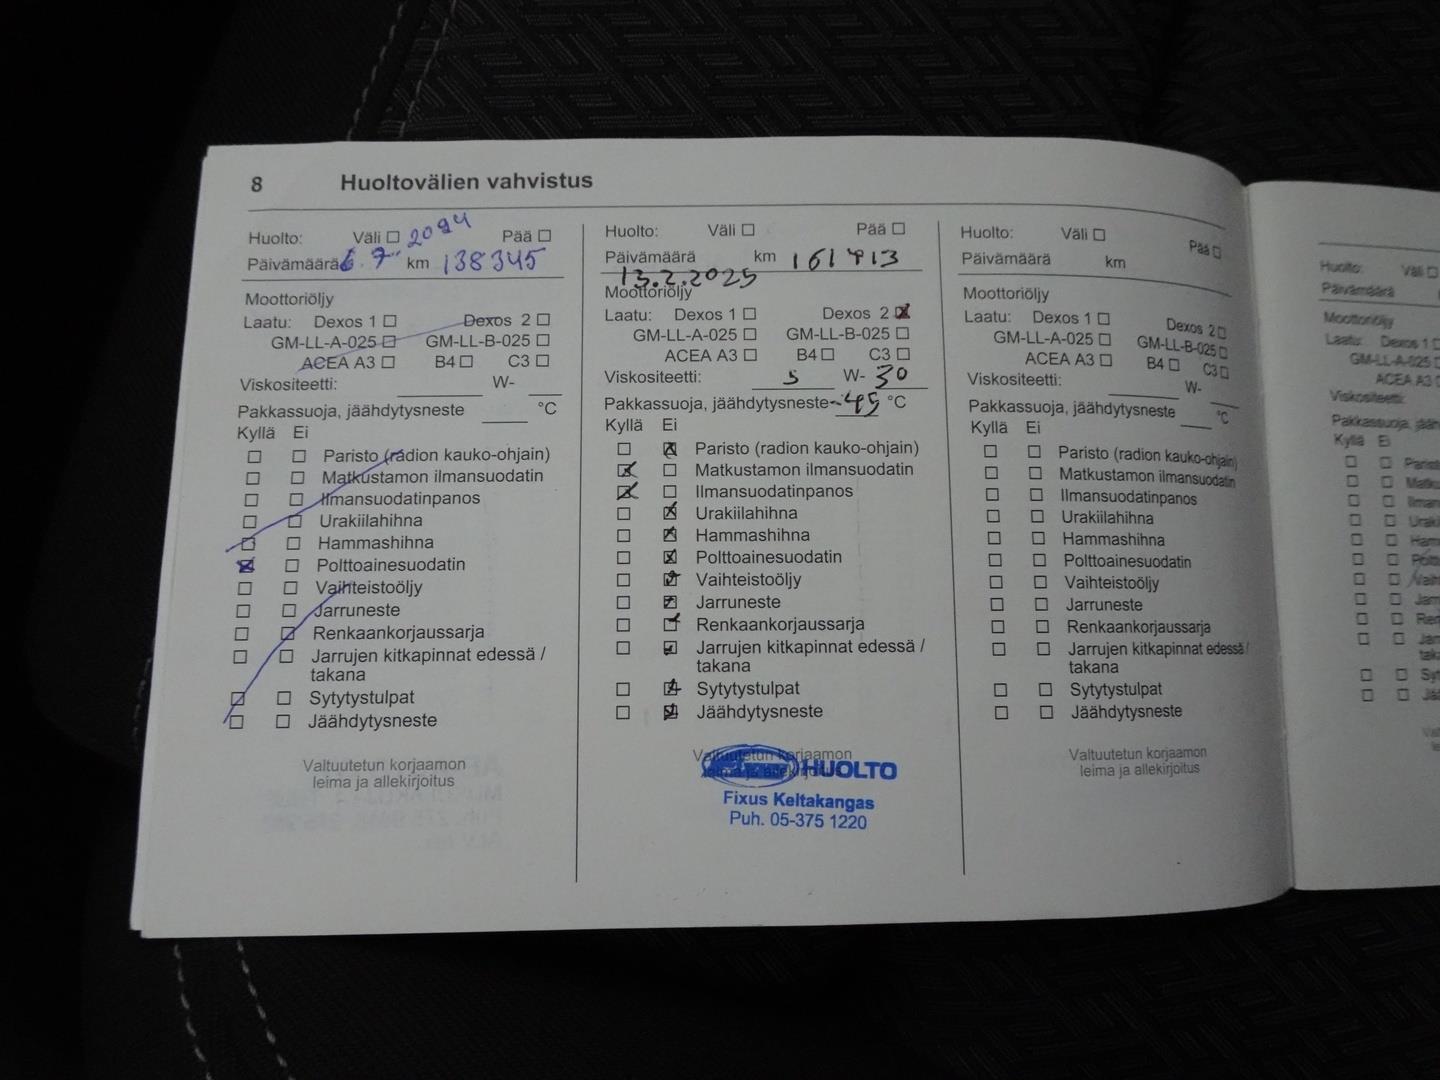 8 Huoltovälien vahvistus
Huolto: Väli Pää
Päivämäärä 6.7. 2024 km 138345
Moottoriöljy
Laatu: Dexos 1 Dexos 2
GM-LL-A-025 GM-LL-B-025
ACEA A3 B4 C3
Viskositeetti: W-
Pakkassuoja, jäähdytysneste °C
Kyllä Ei
Paristo (radion kauko-ohjain)
Matkustamon ilmansuodatin
Ilmansuodatinpanos
Urakiilahihna
Hammashihna
Polttoainesuodatin
Vaihteistoöljy
Jarruneste
Renkaankorjaussarja
Jarrujen kitkapinnat edessä /
takana
Sytytystulpat
Jäähdytysneste
Valtuutetun korjaamon
leima ja allekirjoitus
Huolto: Väli Pää
Päivämäärä km 161413
13.2.2025
Moottoriöljy
Laatu: Dexos 1 Dexos 2
GM-LL-A-025 GM-LL-B-025
ACEA A3 B4 C3
Viskositeetti: 5 W- 30
Pakkassuoja, jäähdytysneste -45 °C
Kyllä Ei
Paristo (radion kauko-ohjain)
Matkustamon ilmansuodatin
Ilmansuodatinpanos
Urakiilahihna
Hammashihna
Polttoainesuodatin
Vaihteistoöljy
Jarruneste
Renkaankorjaussarja
Jarrujen kitkapinnat edessä /
takana
Sytytystulpat
Jäähdytysneste
Valtuutetun korjaamon
leima ja allekirjoitus
HUOLTO
Fixus Keltakangas
Puh. 05-375 1220
Huolto: Väli Pää
Päivämäärä km
Moottoriöljy
Laatu: Dexos 1 Dexos 2
GM-LL-A-025 GM-LL-B-025
ACEA A3 B4 C3
Viskositeetti: W-
Pakkassuoja, jäähdytysneste °C
Kyllä Ei
Paristo (radion kauko-ohjain)
Matkustamon ilmansuodatin
Ilmansuodatinpanos
Urakiilahihna
Hammashihna
Polttoainesuodatin
Vaihteistoöljy
Jarruneste
Renkaankorjaussarja
Jarrujen kitkapinnat edessä /
takana
Sytytystulpat
Jäähdytysneste
Valtuutetun korjaamon
leima ja allekirjoitus
Huolto: Väli
Päivämäärä
Moottoriöljy
Laatu: Dexos 1
GM-LL-A-025
ACEA A3
Viskositeetti:
Kyllä Ei